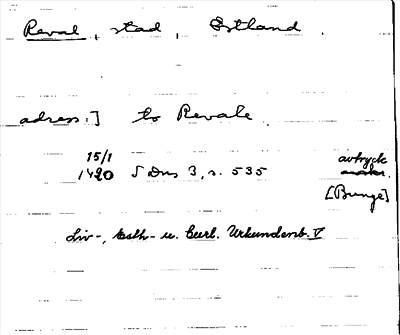 Reval, stad, Estland.
adress:] to Revale
15/1 avtryck
1420 SDns 3, s. 535
[Bunge]
Liv-, Esth- u. Curl. Urkundenb. V